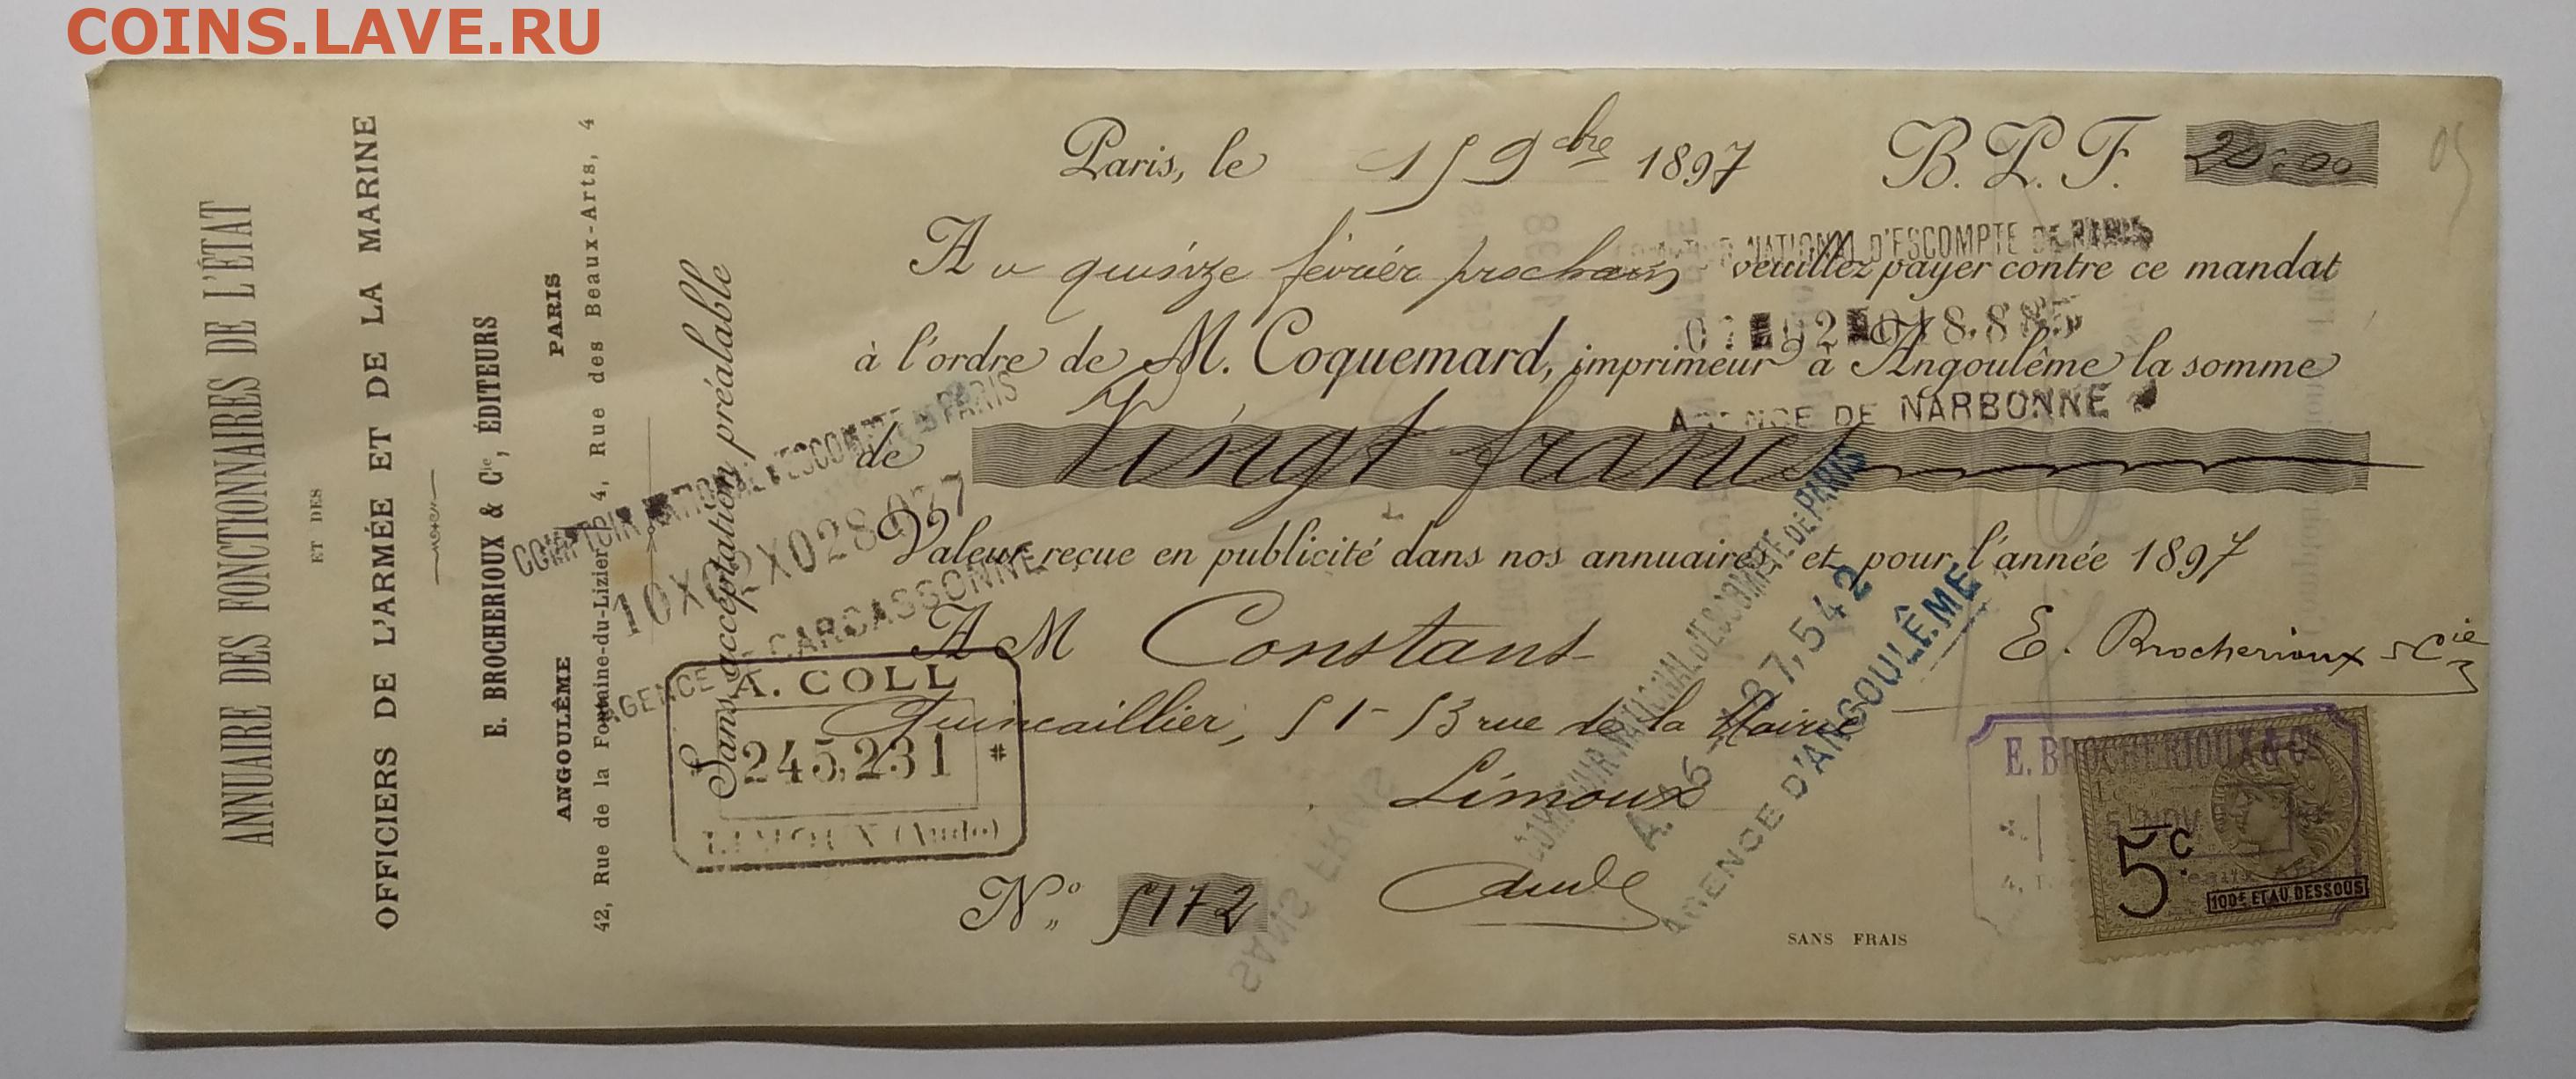 COINS.LAVE.RU
ANNUAIRE DES FONCTIONNAIRES DE L'ÉTAT
ET DES
OFFICIERS DE L'ARMÉE ET DE LA MARINE
E. BROCHERIOUX & Cie, ÉDITEURS
ANGOULÊME PARIS
42, Rue de la Fontaine-du-Lizier 4, Rue des Beaux-Arts, 4
Sans acceptation préalable
Paris, le 15 9bre 1897 B. P. F. 20,00
05
Au quinze février prochain veuillez payer contre ce mandat
à l'ordre de M. Coquemard, imprimeur à Angoulême la somme
de Vingt francs
Valeur reçue en publicité dans nos annuaires et pour l'année 1897
A M Constant
Quincaillier, 51-53 rue de la Mairie
Limoux
Aude
No 5172
E. Brocherioux & Cie
SANS FRAIS
COMPTOIR NATIONAL D'ESCOMPTE DE PARIS
AGENCE DE NARBONNE
COMPTOIR NATIONAL D'ESCOMPTE DE PARIS
10X02X028,077
AGENCE CARCASSONNE
A. COLL
245,231
LIMOUX (Aude)
COMPTOIR NATIONAL D'ESCOMPTE DE PARIS
AGENCE D'ANGOULÊME
SANS FRAIS
E. BROCHERIOUX & Cie
NOV
5c
100F ET AU DESSOUS